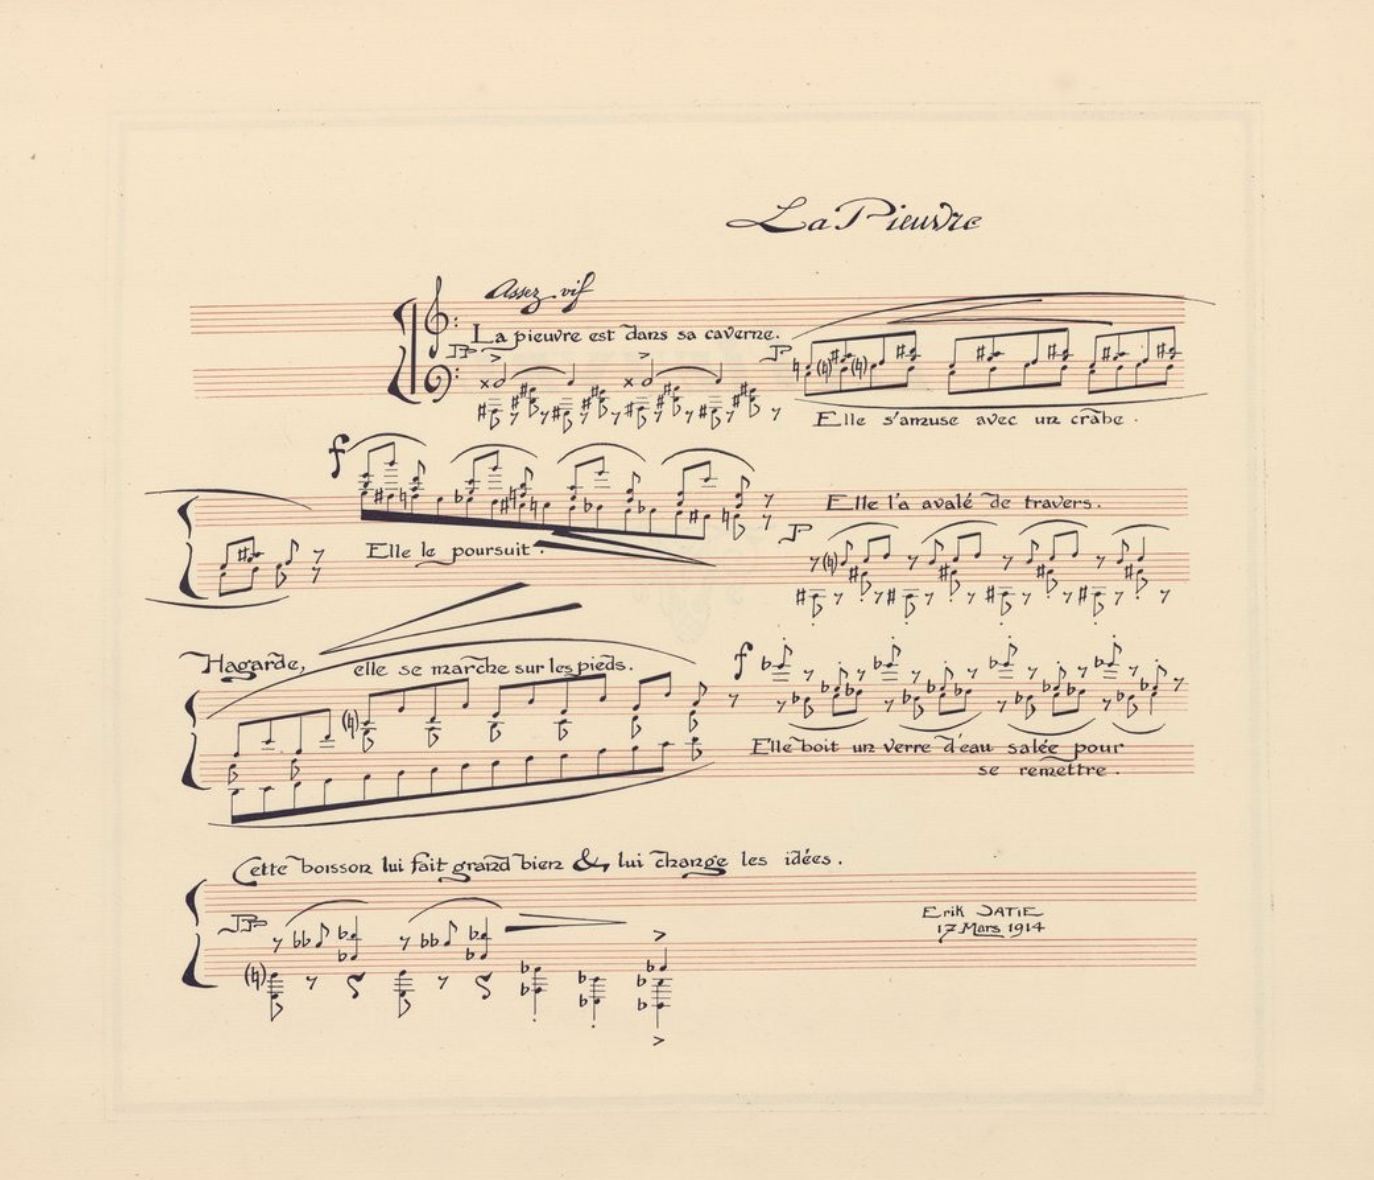 La Pieuvre
Assez vif
La pieuvre est dans sa caverne.
PP
P
Elle s'amuse avec un crabe.
f
Elle le poursuit.
Elle l'a avalé de travers.
P
Hagarde, elle se marche sur les pieds.
f
Elle boit un verre d'eau salée pour
se remettre.
Cette boisson lui fait grand bien & lui change les idées.
PP
Erik SATIE
17 Mars 1914